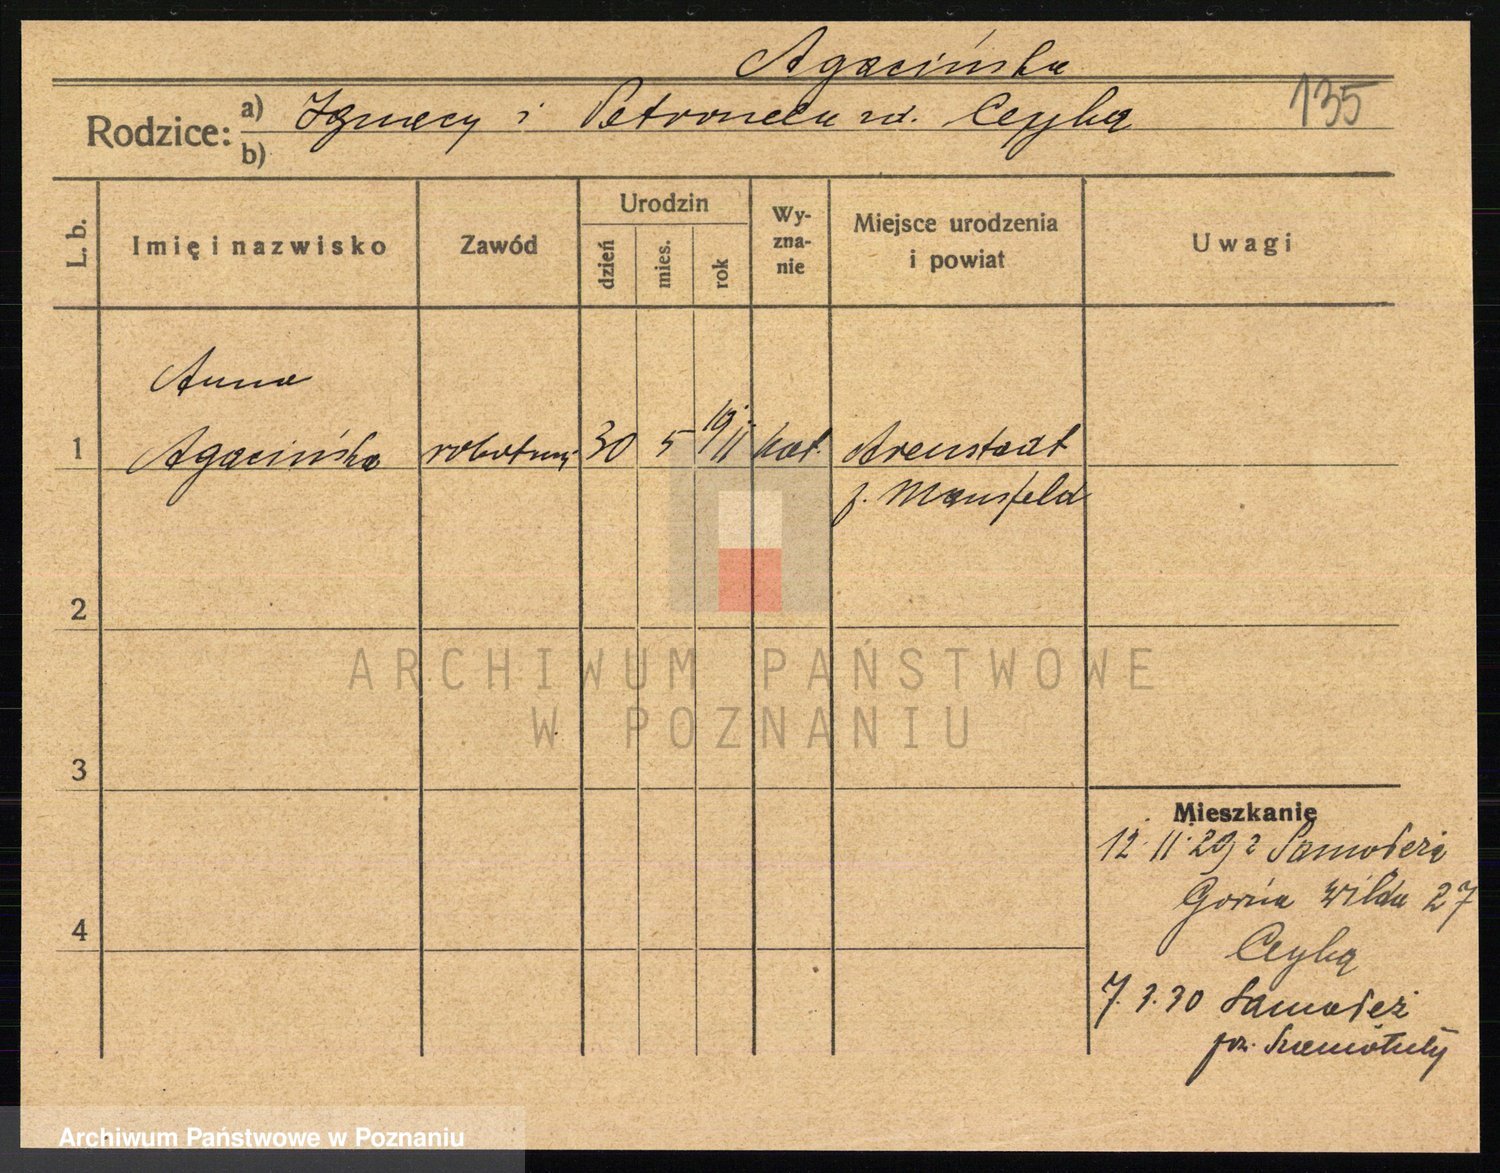 Agacińska
135
Rodzice: a) Ignacy i Petronela zd. Ceyba
b)
L. b.
Imię i nazwisko
Zawód
Urodzin
dzień
mies.
rok
Wy-
zna-
nie
Miejsce urodzenia
i powiat
Uwagi
Anna
1 Agacińska robotnic 30 5 19/11 kat. Arenstadt
p. Mansfeld
2
ARCHIWUM PAŃSTWOWE
W POZNANIU
3
Mieszkanie
12.11.29 z Samołęża
Górna Wilda 27
Ceyba
4
7.3.30 Samołęż
pow. Szamotuły
Archiwum Państwowe w Poznaniu